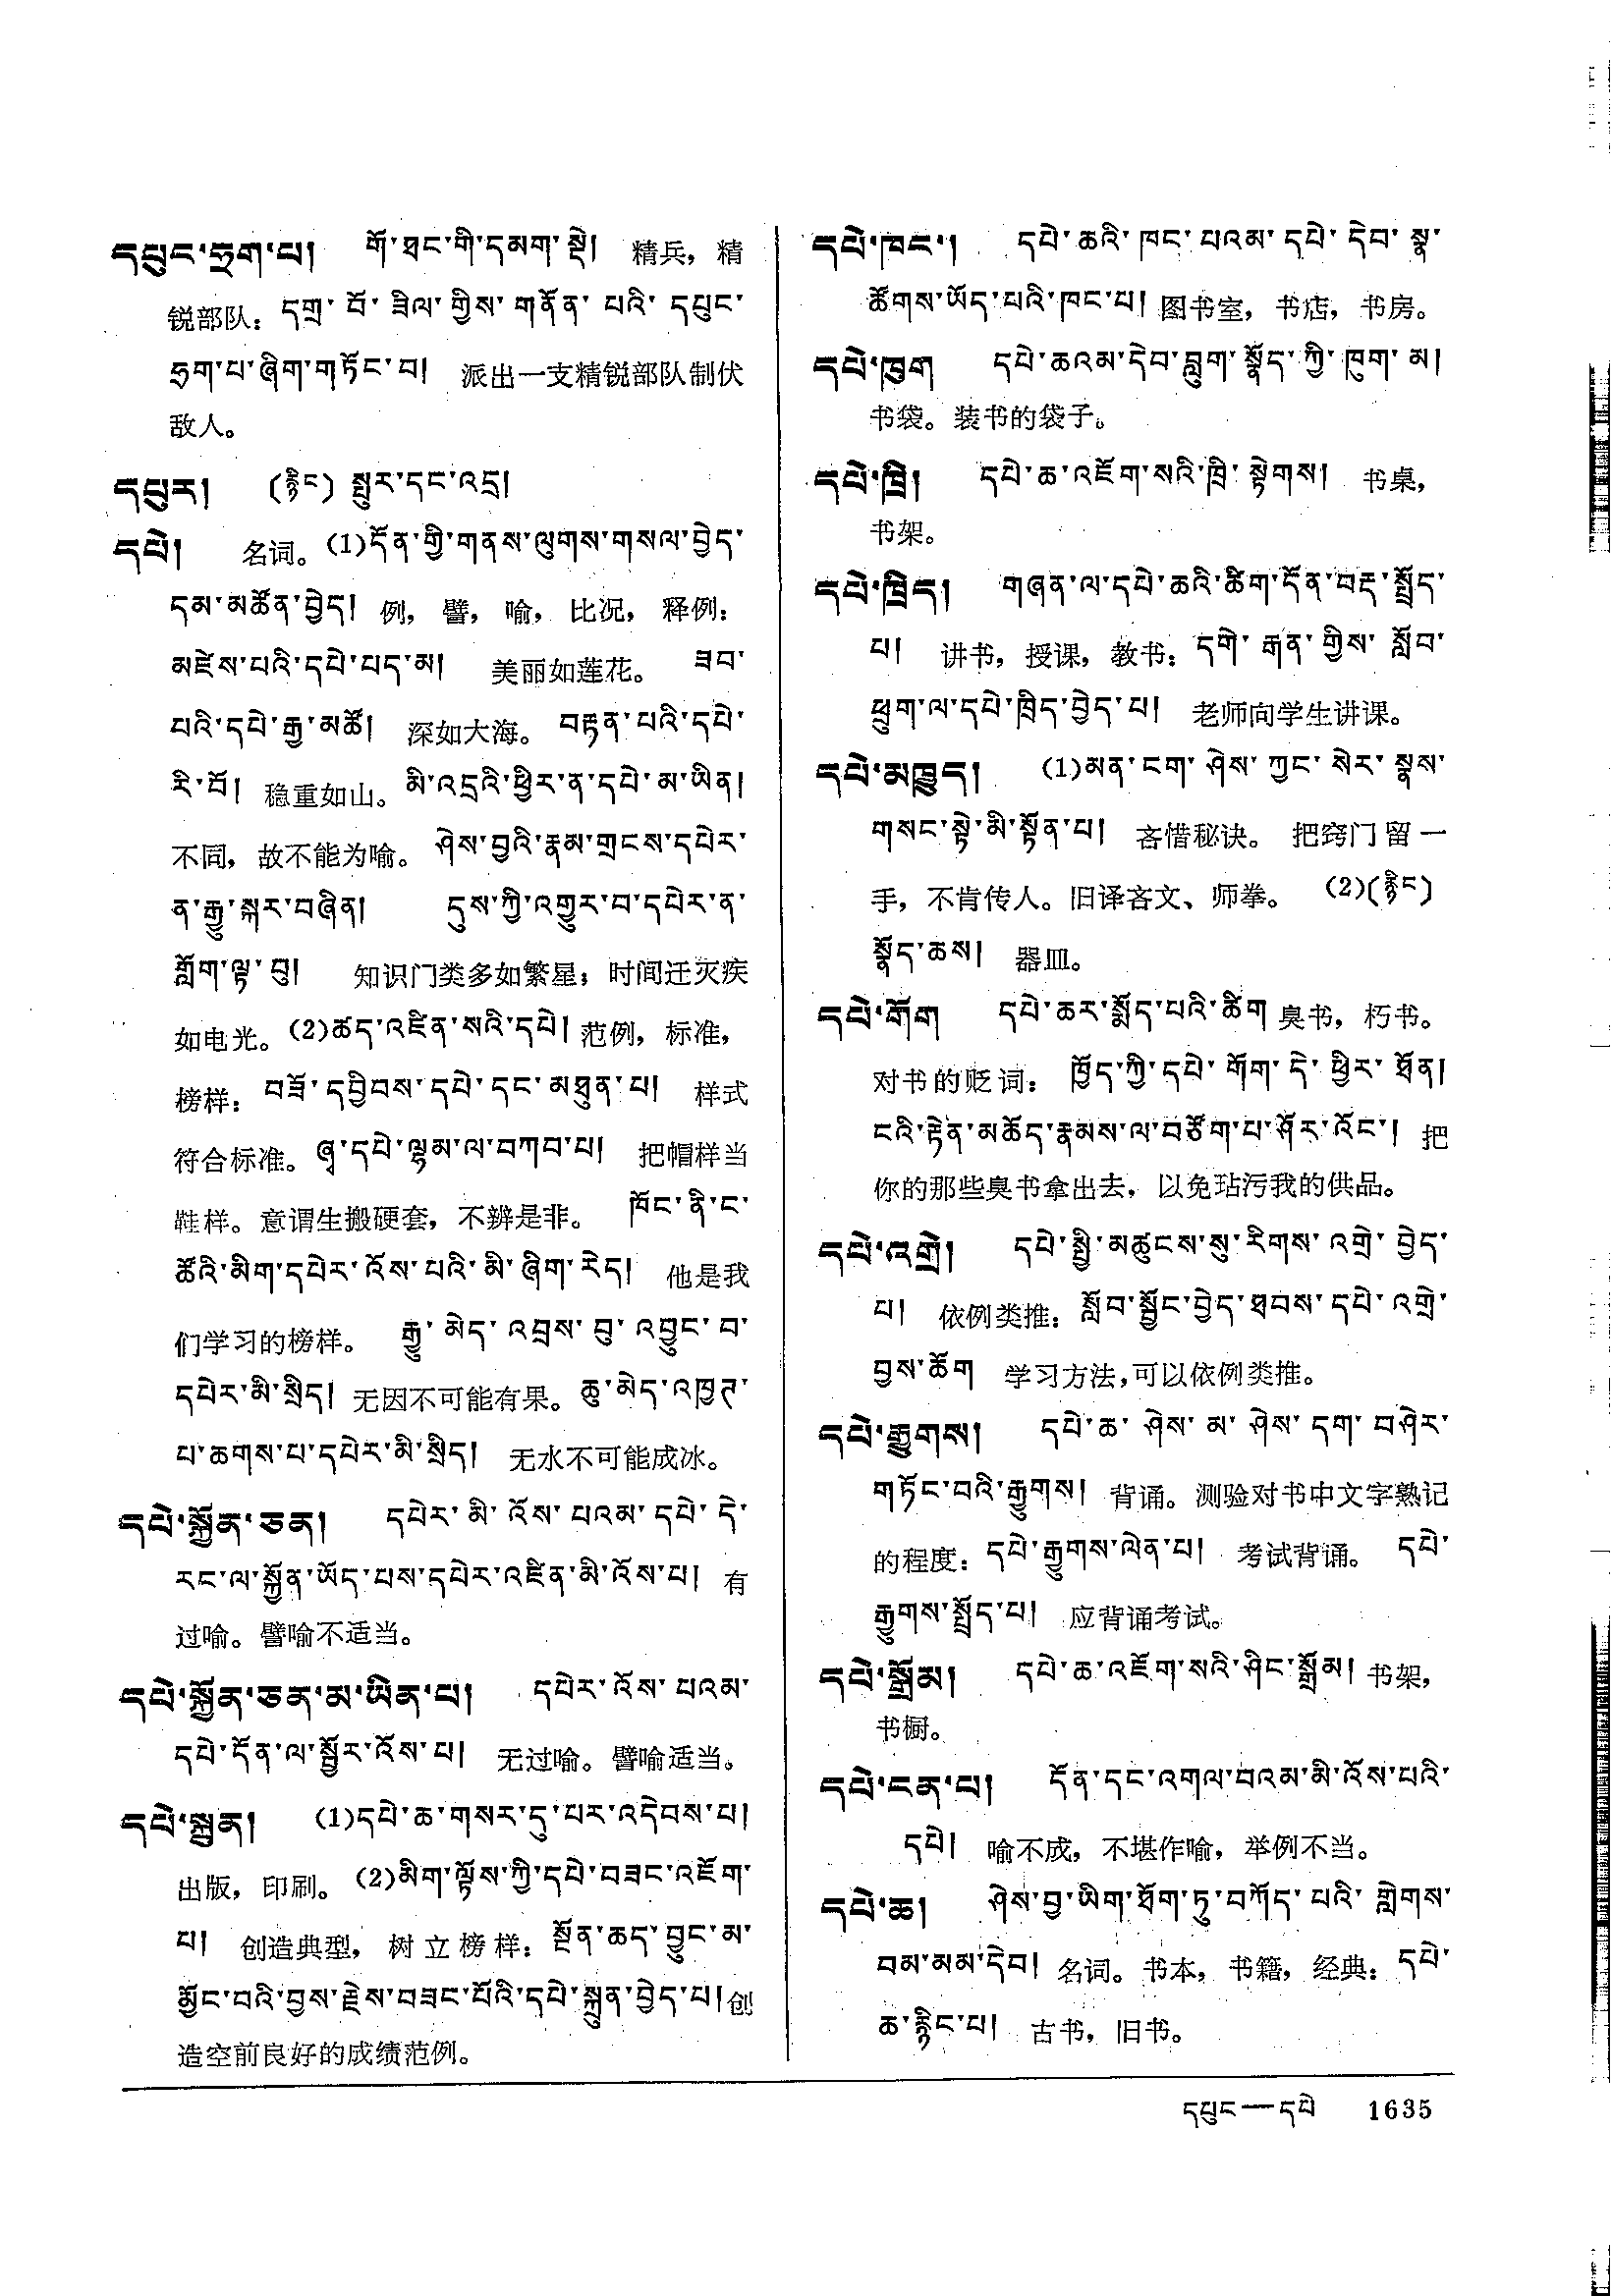 དཔུང་ཧྲག་པ། གོ་ཐང་གི་དམག་སྡེ། 精兵，精
锐部队：དགྲ་བོ་ཟིལ་གྱིས་གནོན་པའི་དཔུང་
ཧྲག་པ་ཞིག་གཏོང་བ། 派出一支精锐部队制伏
敌人。
དཔུར། (རྙིང) སྤུར་དང་འདྲ།
དཔེ། 名词。(1)དོན་གྱི་གནས་ལུགས་གསལ་བྱེད་
དམ་མཚོན་བྱེད། 例，譬，喻，比况，释例：
མཛེས་པའི་དཔེ་པད་མ། 美丽如莲花。 ཟབ་
པའི་དཔེ་རྒྱ་མཚོ། 深如大海。 བརྟན་པའི་དཔེ་
རི་བོ། 稳重如山。མི་འདྲའི་ཕྱིར་ན་དཔེ་མ་ཡིན།
不同，故不能为喻。 ཤེས་བྱའི་རྣམ་གྲངས་དཔེར་
ན་རྒྱུ་སྐར་བཞིན། དུས་ཀྱི་འགྱུར་བ་དཔེར་ན་
གློག་ལྟ་བུ། 知识门类多如繁星；时间迁灭疾
如电光。(2)ཚད་འཛིན་སའི་དཔེ། 范例，标准，
榜样：བཟོ་དབྱིབས་དཔེ་དང་མཐུན་པ། 样式
符合标准。ཞྭ་དཔེ་ལྷམ་ལ་བཀབ་པ། 把帽样当
鞋样。意谓生搬硬套，不辨是非。 ཁོང་ནི་ང་
ཚོའི་མིག་དཔེར་འོས་པའི་མི་ཞིག་རེད། 他是我
们学习的榜样。 རྒྱུ་མེད་འབྲས་བུ་འབྱུང་བ་
དཔེར་མི་སྲིད། 无因不可能有果。ཆུ་མེད་འཁྱཊ་
པ་ཆགས་པ་དཔེར་མི་སྲིད། 无水不可能成冰。
དཔེ་སྐྱོན་ཅན། དཔེར་མི་འོས་པའམ་དཔེ་དེ་
རང་ལ་སྐྱོན་ཡོད་པས་དཔེར་འཛིན་མི་འོས་པ། 有
过喻。譬喻不适当。
དཔེ་སྐྱོན་ཅན་མ་ཡིན་པ། དཔེར་འོས་པའམ་
དཔེ་དོན་ལ་སྦྱོར་འོས་པ། 无过喻。譬喻适当。
དཔེ་སྐྲུན། (1)དཔེ་ཆ་གསར་དུ་པར་འདེབས་པ།
出版，印刷。(2)མིག་ལྟོས་ཀྱི་དཔེ་བཟང་འཇོག་
པ། 创造典型，树立榜样：སྔོན་ཆད་བྱུང་མ་
མྱོང་བའི་བྱས་རྗེས་བཟང་པོའི་དཔེ་སྐྲུན་བྱེད་པ།创
造空前良好的成绩范例。
དཔེ་ཁང་། དཔེ་ཆའི་ཁང་པའམ་དཔེ་དེབ་སྣ་
ཚོགས་ཡོད་པའི་ཁང་པ། 图书室，书店，书房。
དཔེ་ཁུག དཔེ་ཆའམ་དེབ་བླུག་སྣོད་ཀྱི་ཁུག་མ།
书袋。装书的袋子。
དཔེ་ཁྲི། དཔེ་ཆ་འཇོག་སའི་ཁྲི་སྟེགས། 书桌，
书架。
དཔེ་ཁྲིད། གཞན་ལ་དཔེ་ཆའི་ཚིག་དོན་བརྡ་སྤྲོད་
པ། 讲书，授课，教书：དགེ་རྒན་གྱིས་སློབ་
ཕྲུག་ལ་དཔེ་ཁྲིད་བྱེད་པ། 老师向学生讲课。
དཔེ་མཁྱུད། (1)མན་ངག་ཤེས་ཀྱང་སེར་སྣས་
གསང་སྟེ་མི་སྟོན་པ། 吝惜秘诀。 把窍门留一
手，不肯传人。旧译吝文、师拳。 (2)(རྙིང)
སྣོད་ཆས། 器皿。
དཔེ་གོག དཔེ་ཆར་སྨོད་པའི་ཚིག 臭书，朽书。
对书的贬词： ཁྱོད་ཀྱི་དཔེ་གོག་དེ་ཕྱིར་ཐོན།
ངའི་རྟེན་མཆོད་རྣམས་ལ་བཙོག་པ་ཤོར་འོང་། 把
你的那些臭书拿出去，以免玷污我的供品。
དཔེ་འགྲེ། དཔེ་སྤྱི་མཚུངས་སུ་རིགས་འགྲེ་བྱེད་
པ། 依例类推：སློབ་སྦྱོང་བྱེད་ཐབས་དཔེ་འགྲེ་
བྱས་ཆོག 学习方法，可以依例类推。
དཔེ་རྒྱུགས། དཔེ་ཆ་ཤེས་མ་ཤེས་དག་བཤེར་
གཏོང་བའི་རྒྱུགས། 背诵。测验对书中文字熟记
的程度：དཔེ་རྒྱུགས་ལེན་པ། 考试背诵。 དཔེ་
རྒྱུགས་སྤྲོད་པ། 应背诵考试。
དཔེ་སྒྲོམ། དཔེ་ཆ་འཇོག་སའི་ཤིང་སྒྲོམ། 书架，
书橱。
དཔེ་ངན་པ། དོན་དང་འགལ་བའམ་མི་འོས་པའི་
དཔེ། 喻不成，不堪作喻，举例不当。
དཔེ་ཆ། ཤེས་བྱ་ཡིག་ཐོག་ཏུ་བཀོད་པའི་གླེགས་
བམ་མམ་དེབ། 名词。书本，书籍，经典：དཔེ་
ཆ་རྙིང་པ། 古书，旧书。
དཔུང—དཔེ 1635